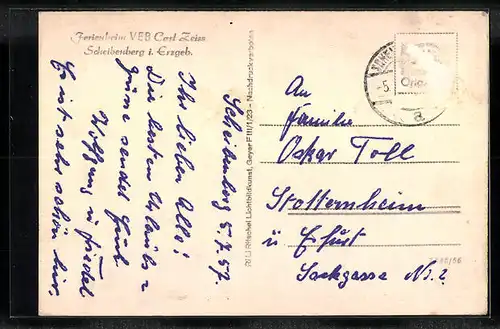 Ferienheim VEB Carl Zeiss
Scheibenberg i. Erzgeb.
Scheibenberg 5.7.57.
Ihr lieben Alle!
Die besten Urlaubs =
grüsse sendet Euch
Wolfgang u. Friedel
Es ist sehr schön hier.
Ritschel Lichtbildkunst, Geyer F III/1/23 - Nachdruck verboten
An
Familie
Oskar Toll
Stotternheim
ü Erfurt
Sackgasse Nr. 2